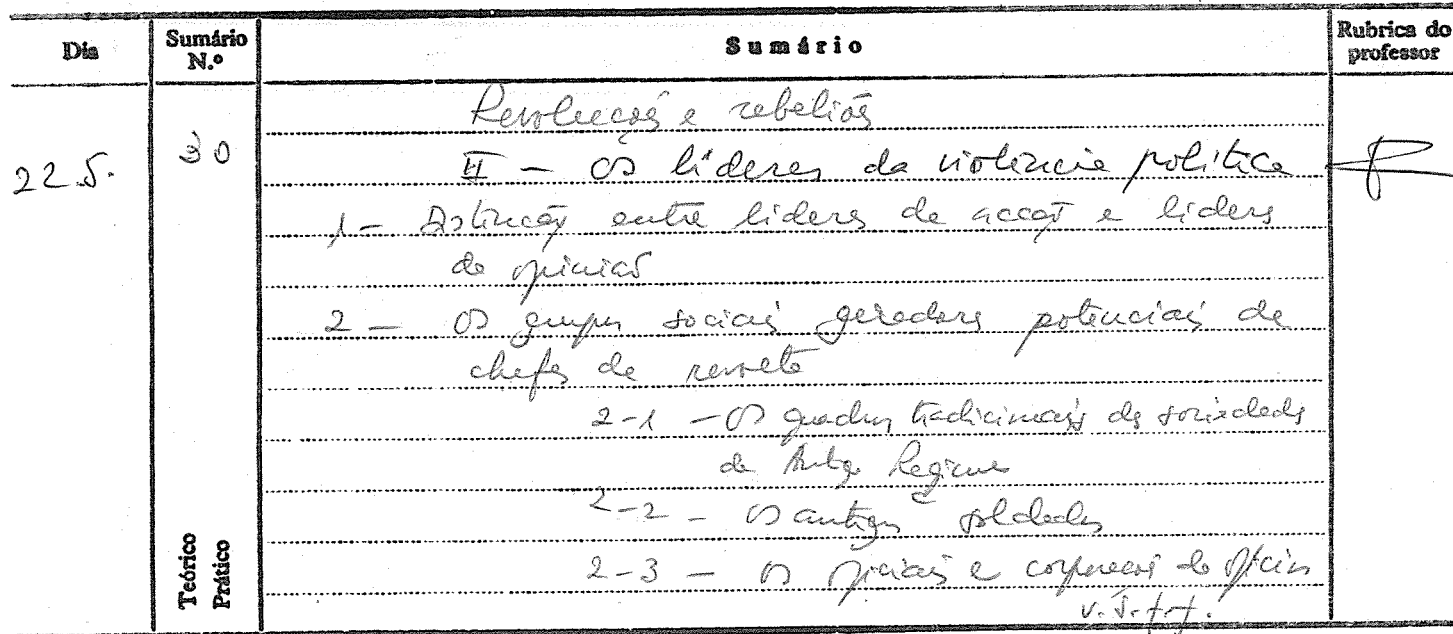 Dia Sumário N.º Sumário Rubrica do professor
Revoluções e rebeliões
22.5. 30 II - Os líderes da violência política
1 - Distinção entre líderes de acção e líderes
de opinião
2 - Os grupos sociais geradores potenciais de
chefes de revolta
2-1 - Os quadros tradicionais da sociedade
de Antigo Regime
2-2 - Os antigos soldados
2-3 - Os oficiais e corporações de ofícios
Teórico
Prático